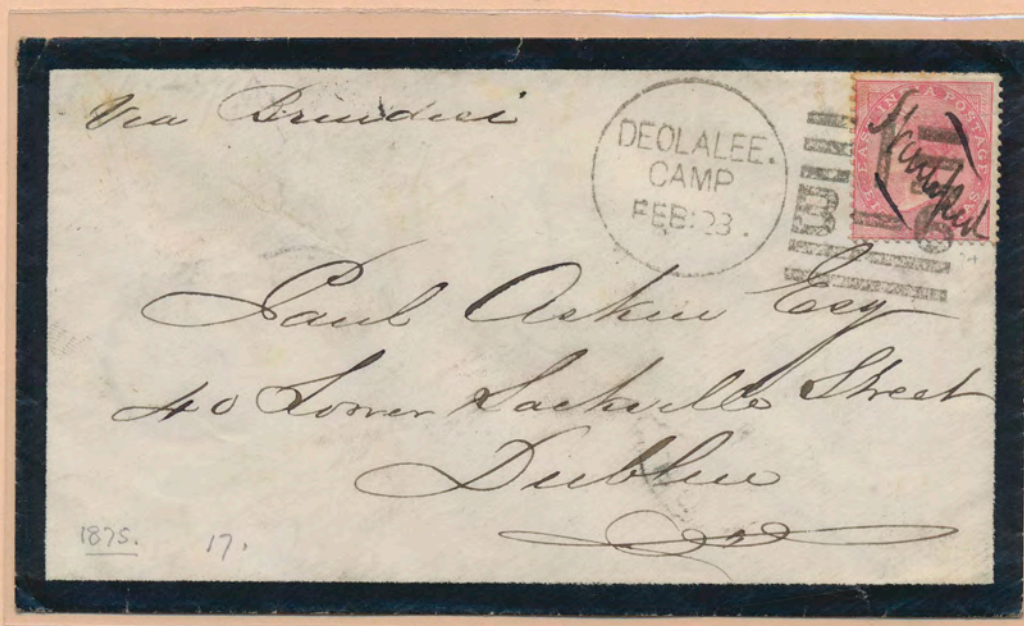 Via Brindisi
DEOLALEE.
CAMP
FEB:23.
EAST INDIA POSTAGE
B
Paul Askin Esq
40 Lower Sackville Street
Dublin
1875.
17.